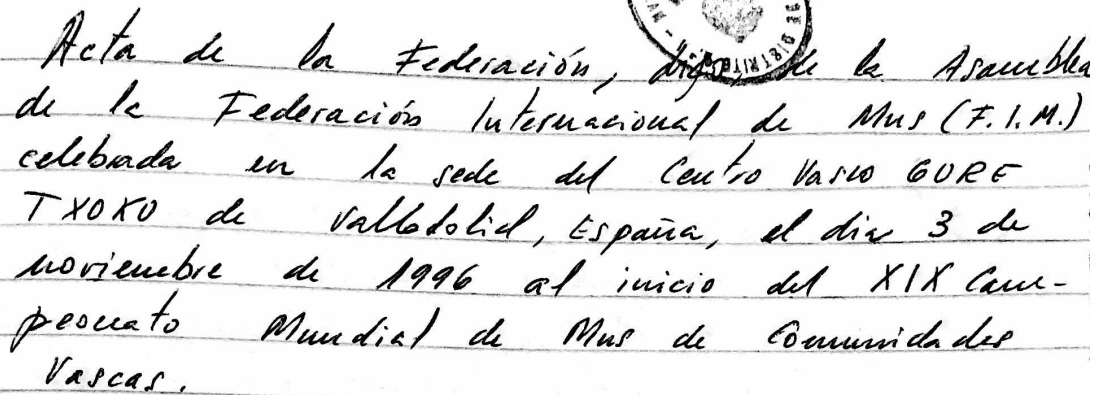 Acta de la Federación, digo, de la Asamblea
de la Federación Internacional de Mus (F.I.M.)
celebrada en la sede del Centro Vasco GURE
TXOKO de Valladolid, España, el dia 3 de
noviembre de 1996 al inicio del XIX Cam-
peonato Mundial de Mus de Comunidades
Vascas.